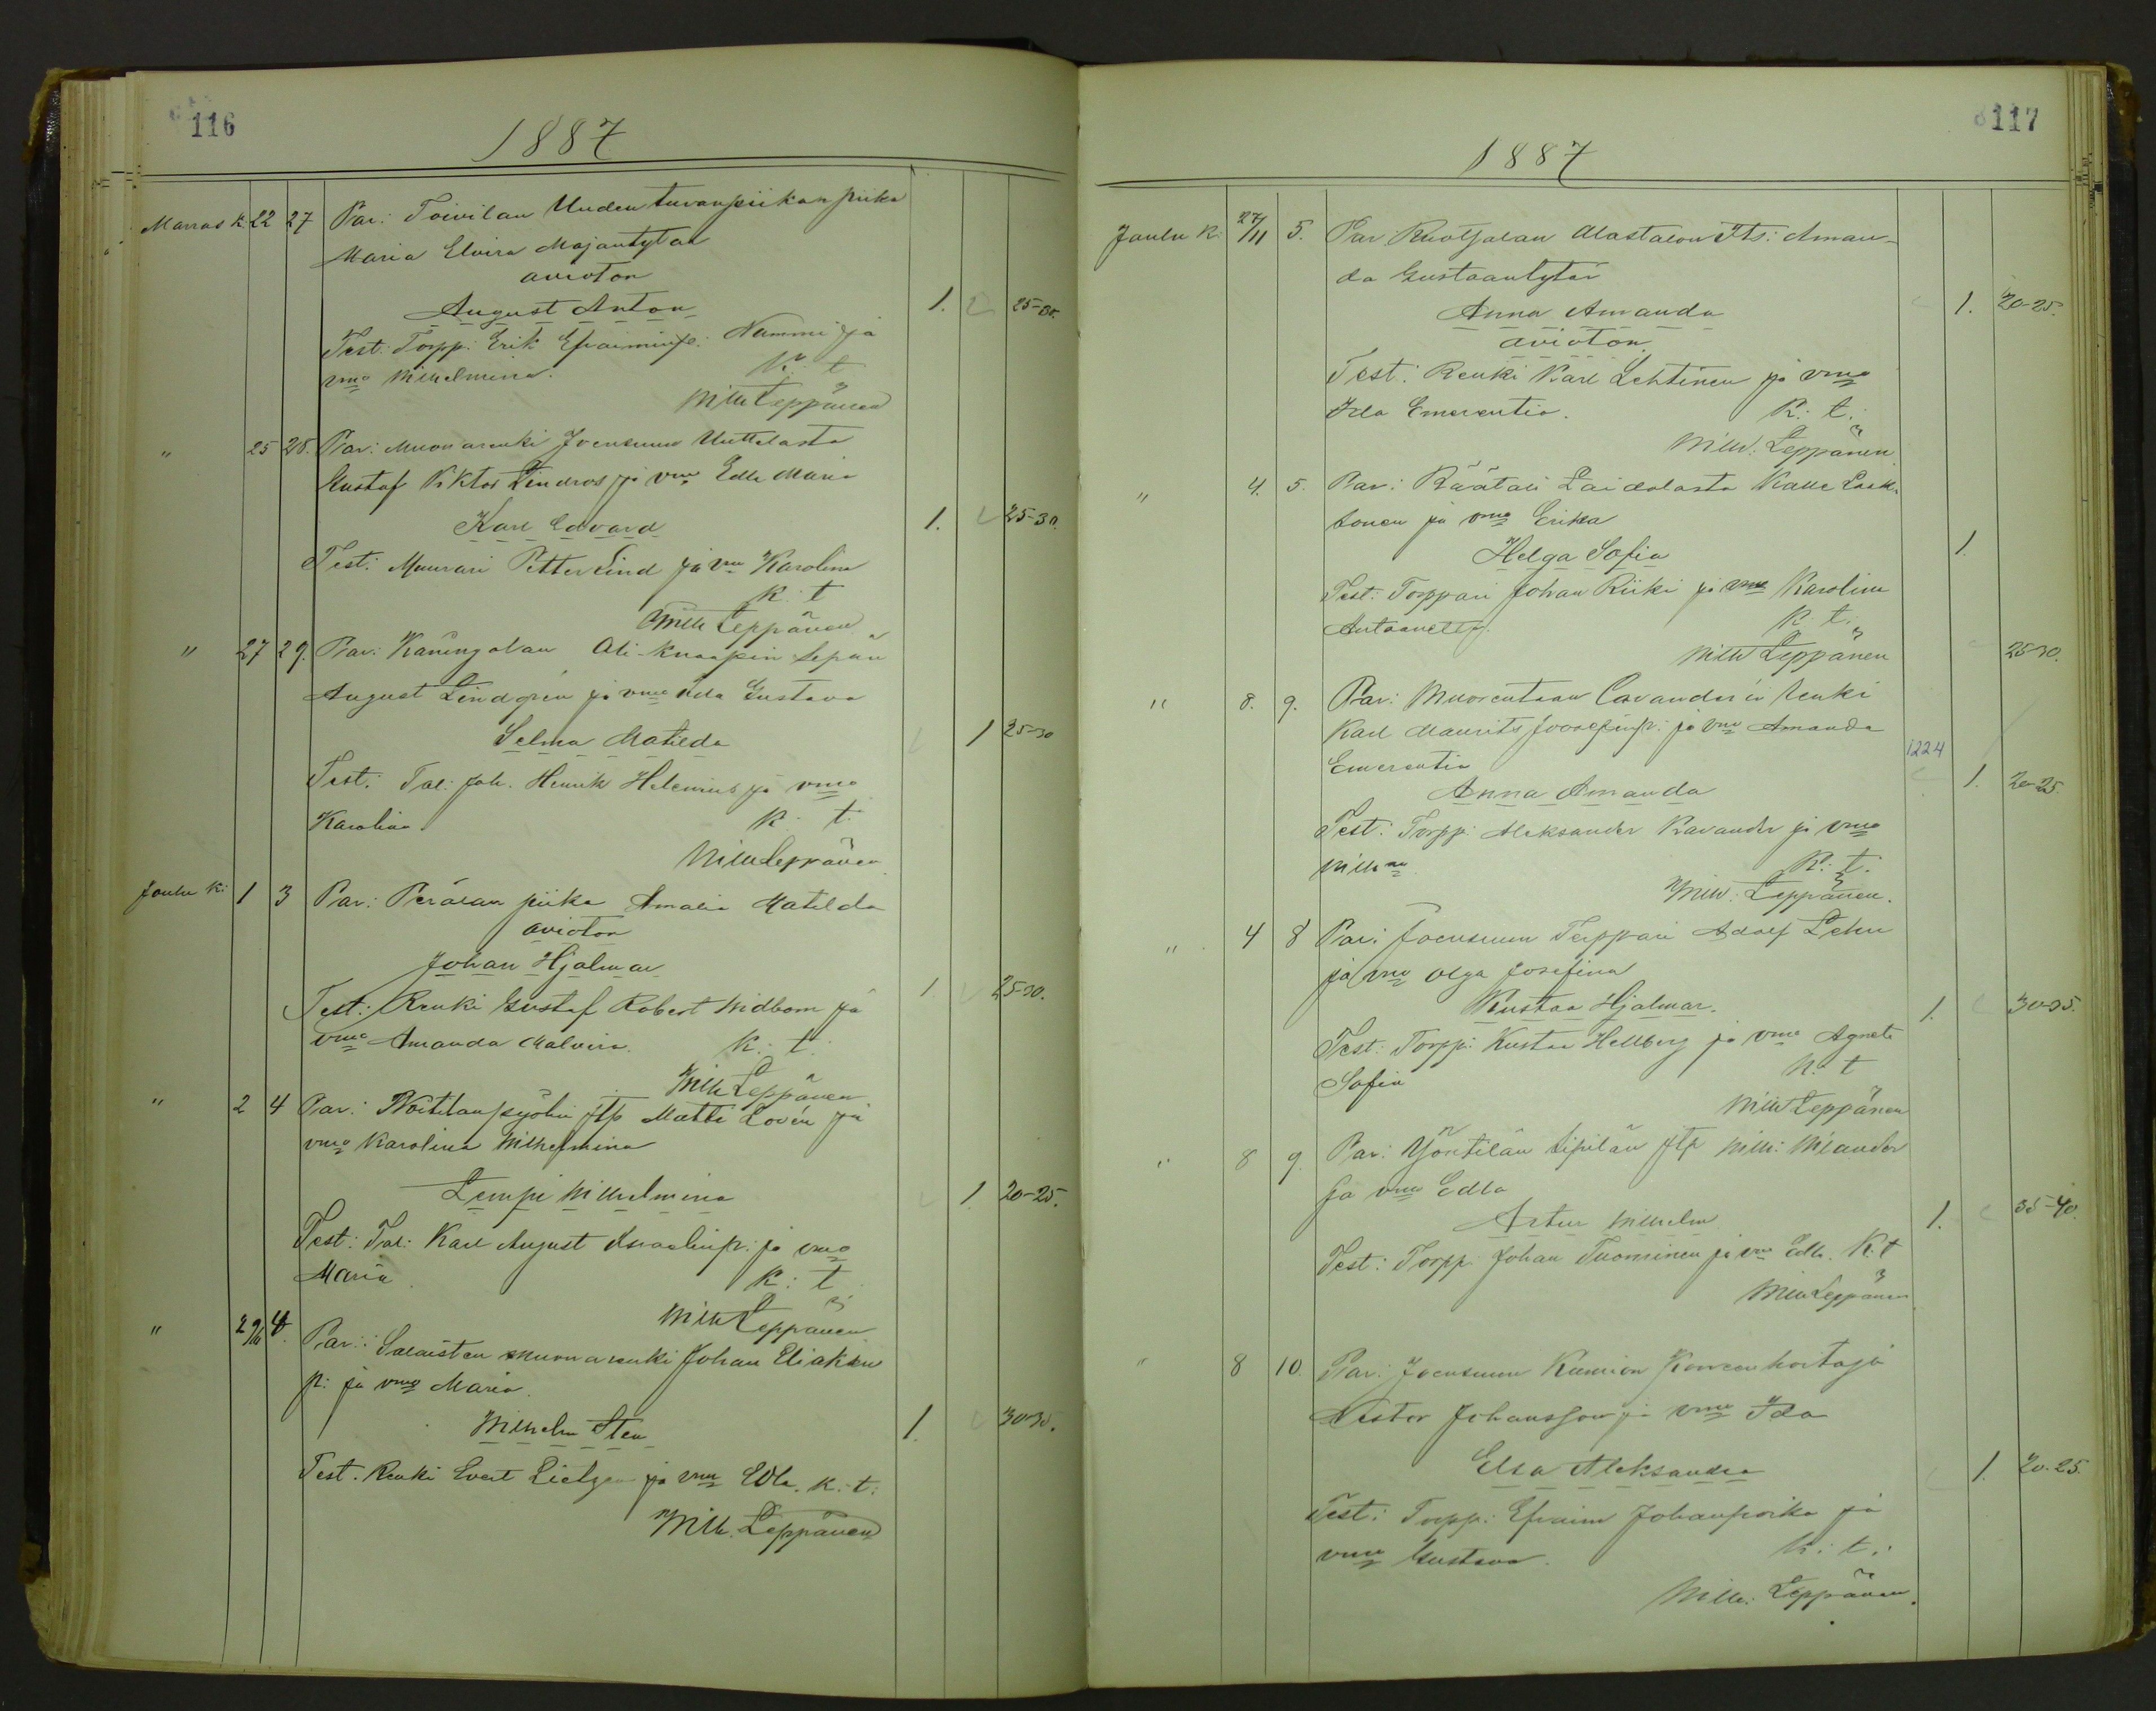 116
1887
Marras k. 22 27 Par: Toivilan Uudentuvanpiikan piika
Maria Elvira Majantytar
avioton
August Anton 1. 25-30.
Test: Torpp. Erik Efraiminp. Nummi ja
vmo Wilhelmina. K. t
Wilh Leppänen
" 25 28. Par: Muonarenki Joensuun Uuttelasta
Gustaf Viktor Lindros ja vmo Edla Maria
Karl Edvard 1. 25-30.
Test: Muurari Petter Lind ja vmo Karolina
K. t
Wilh Leppänen
" 27 29. Par: Ali-Knaapin Sepän
August Lindgrén ja vmo Ida Gustava
Selma Matilda 1 25-30
Test: Tal. Joh. Henrik Helenius ja vmo
Karolina K. t.
Wilh Leppänen
Joulu k: 1 3 Par: Perälän piika Amalia Matilda
avioton
Johan Hjalmar
Test: Renki Gustaf Robert Widbom ja 1. 25-30.
vmo Amanda Malvina. K. t.
Wilh Leppänen
" 2 4 Par: jtp Matti Lovén ja
vmo Karolina Wilhelmina
Lempi Wilhelmina 1. 20-25.
Test: Tal: Karl August Israelinp. ja vmo
Maria K: t.
Wilh Leppänen
" 29/11 4. Par: Salaisten muonarenki Johan Eliaksen
p: ja vmo Maria.
Wilhelm Sten 1. 30-35.
Test. Renki Evert ja vmo Edla. K. t.
Wilh. Leppänen
117
1887
Joulu k: 27/11 5. Par: Ruotsalan Alastalon Its: Aman-
da Gustaantytär
Anna Amanda 1. 20-25.
avioton
Test: Renki Karl Lehtinen ja vmo
Ida Emerentia. K. t.
Wilh. Leppänen
" 4. 5. Par: Räätäli Laidalasta Kalle Laak-
sonen ja vmo Erika
Helga Sofia 1.
Test: Torppari Johan Riiki ja vmo Karolina
K. t.
Wilh Leppänen 25-30.
" 8. 9. Par: Cavander'in renki
Karl Maurits Joosefinp: ja vmo Amanda
Emerentia 1224
Anna Amanda 1. 20-25.
Test: Torpp: Aleksander Kavander ja vmo
K. t.
Wilh. Leppänen.
" 4 8 Par: Joensuun Torppari Adolf Lehn
ja vmo Olga Josefina
Kustaa Hjalmar. 1. 30-35.
Test: Torpp: Kustaa Hellberg ja vmo Agneta
Sofia K. t
Wilh Leppänen
" 8 9. Par: Yöntilän Sipilän jtp Wilh:
ja vmo Edla
Artur Wilhelm 1. 35-40.
Test: Torpp. Johan Tuominen ja vmo Edla. K. t
Wilh Leppänen
" 8 10. Par: Joensuun Kunnon Koneen hoitaja
Nestor Johansson ja vmo Ida
Elsa Aleksandra 1. 20-25.
Test: Torpp: Efraim Johanpoika ja
vmo Gustava. K: t.
Wilh: Leppänen.